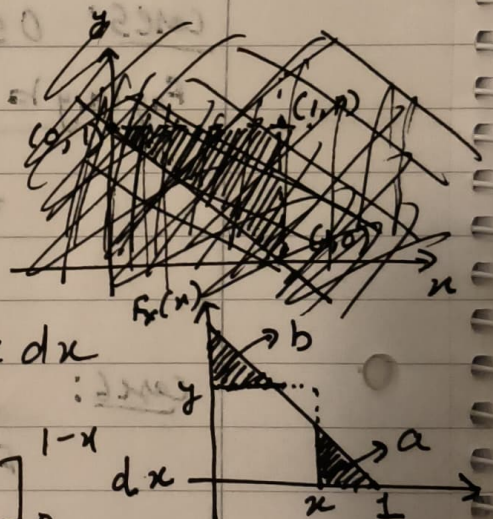 y
(0,1)
(1,1)
x
Fx(x)
: dx
b
y
1-x
a
d x
x 1